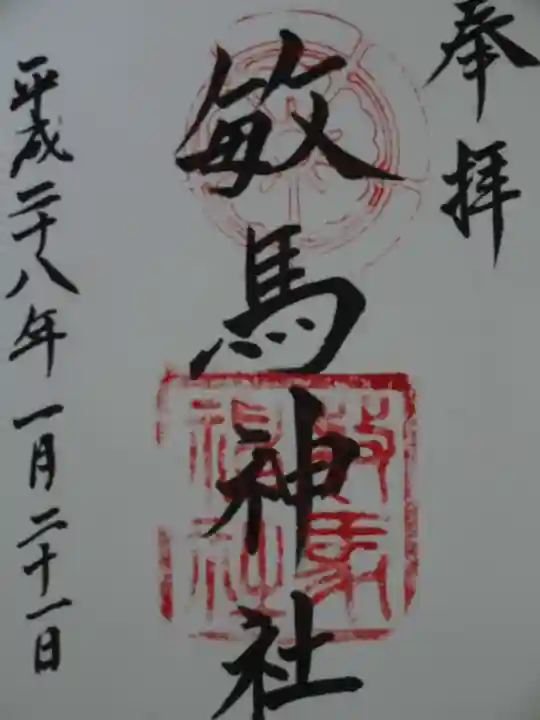 奉拝
敏馬神社
平成二十八年一月二十一日
敏馬
神社